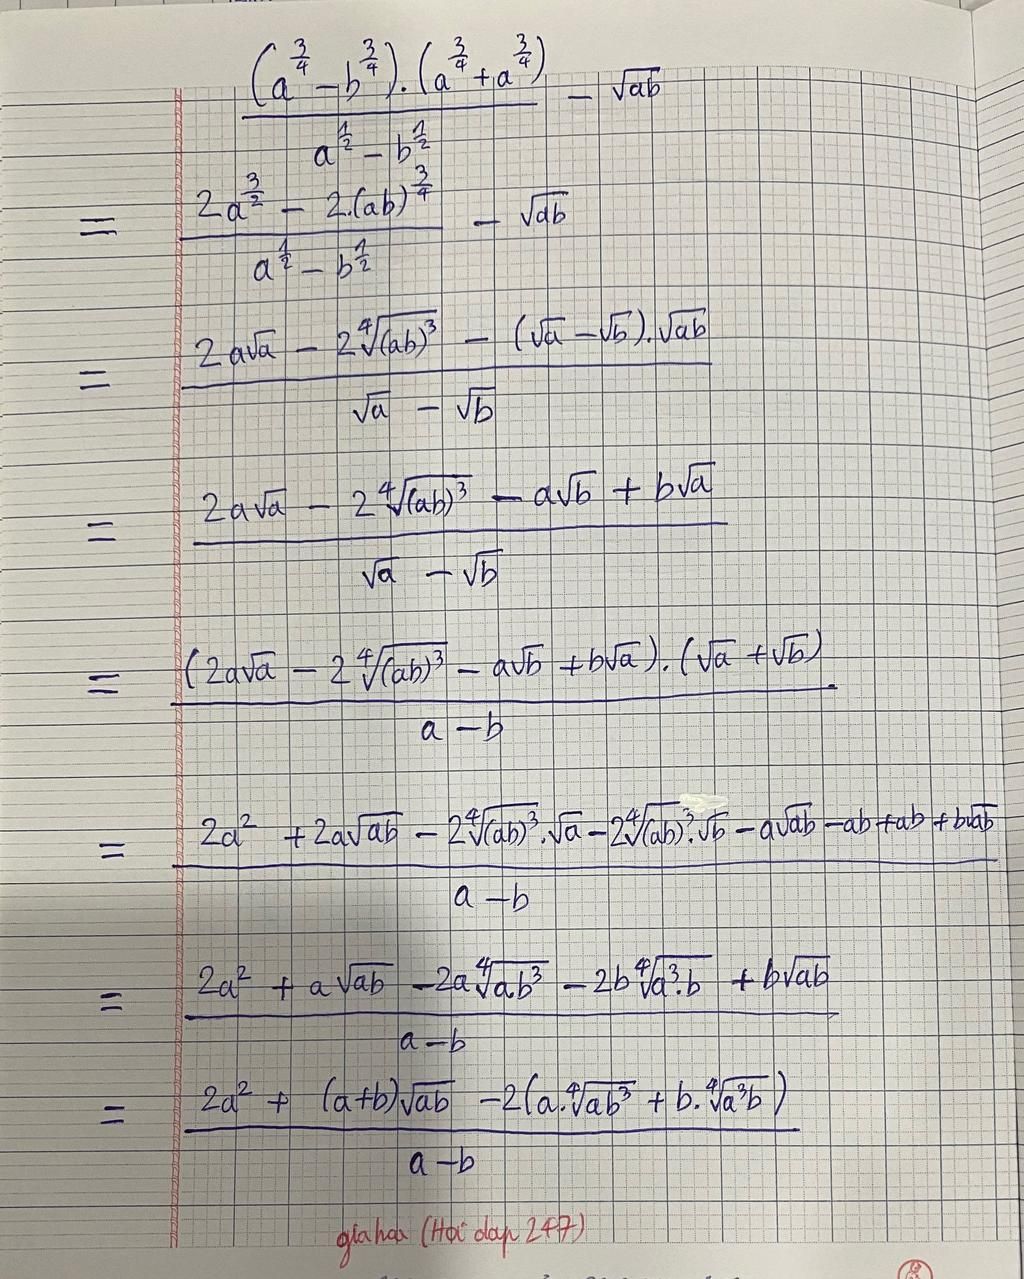 (a^{3/4} - b^{3/4}).(a^{3/4} + a^{3/4}) / (a^{1/2} - b^{1/2}) - √ab
= (2a^{3/2} - 2.(ab)^{3/4}) / (a^{1/2} - b^{1/2}) - √ab
= (2a√a - 2∜(ab)³ - (√a - √b).√ab) / (√a - √b)
= (2a√a - 2∜(ab)³ - a√b + b√a) / (√a - √b)
= (2a√a - 2∜(ab)³ - a√b + b√a).(√a + √b) / (a - b)
= (2a² + 2a√ab - 2∜(ab)³.√a - 2∜(ab)³.√b - a√ab - ab + ab + b√ab) / (a - b)
= (2a² + a√ab - 2a∜(ab³) - 2b∜(a³.b) + b√ab) / (a - b)
= (2a² + (a+b)√ab - 2(a.∜(ab³) + b.∜(a³b))) / (a - b)
giahan (Hoi dap 247)